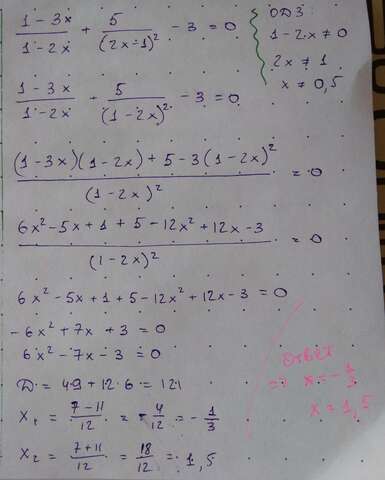 (1 - 3x)/(1 - 2x) + 5/(2x - 1)² - 3 = 0
ОДЗ:
1 - 2x ≠ 0
2x ≠ 1
x ≠ 0,5
(1 - 3x)/(1 - 2x) + 5/(1 - 2x)² - 3 = 0
((1 - 3x)(1 - 2x) + 5 - 3(1 - 2x)²)/(1 - 2x)² = 0
(6x² - 5x + 1 + 5 - 12x² + 12x - 3)/(1 - 2x)² = 0
6x² - 5x + 1 + 5 - 12x² + 12x - 3 = 0
- 6x² + 7x + 3 = 0
6x² - 7x - 3 = 0
D = 49 + 12·6 = 121
x₁ = (7 - 11)/12 = - 4/12 = - 1/3
x₂ = (7 + 11)/12 = 18/12 = 1,5
ответ
=> x = - 1/3
x = 1,5